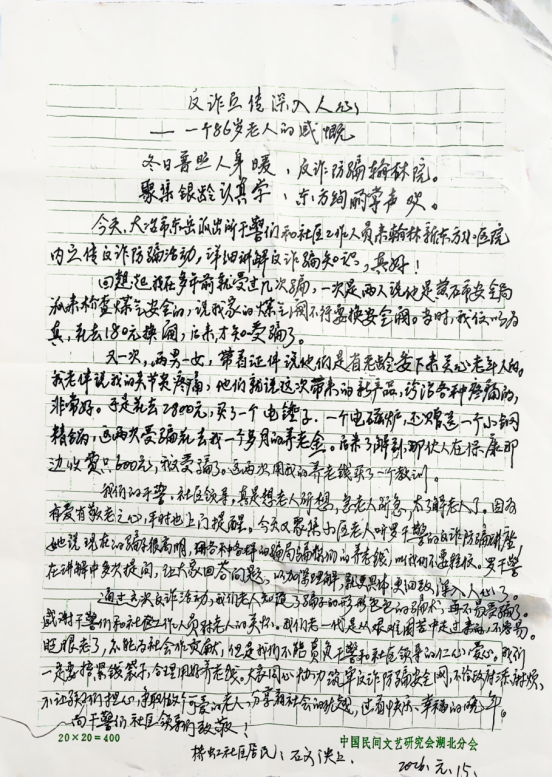 反诈宣传深入人心
——一个86岁老人的感慨
冬日普照人身暖、反诈防骗翰林院。
聚集银龄认真学、东方绚丽掌声欢。
今天,大冶市东岳派出所干警们和社区工作人员来翰林新东方小区院
内宣传反诈防骗活动,详细讲解反诈骗知识,真好!
回想起我在多年前就受过几次骗,一次是两人说他是黄石市安全局
派来检查煤气安全的,说我家的煤气阀不行要换安全阀。当时,我信以为
真,花去180元换阀,后来才知受骗了。
又一次,两男一女,带着证件说他们是省老龄委下来关心老年人的。
我老伴说我的关节炎疼痛,他们就说这次带来的新产品,诊治各种疼痛的,
非常好。于是花去2800元,买了一个电锤子,一个电磁炉,还赠送一个小钢
精锅,这两次受骗花去我一个多月的养老金。后来了解到,那伙人在保康那
边收费只600元,我受骗了。这两次用我的养老钱买了一个教训。
我们的干警、社区领导,真是想老人所想,急老人所急,太了解老人了。因为
有爱有敬老之心,平时也上门提醒。今天又聚集小区老人听男干警的反诈防骗讲座
她说现在的骗子很高明,用各种各样的骗局骗你们的养老钱,叫我们不要轻信。男干警
在讲解中多次提问,让大家回答问题,以加深理解,就更具体更细致深入人心了。
通过这次反诈活动,我们老人知道了骗子的形形色色的骗术,再不易受骗了。
感谢干警们和社区工作人员对老人的关怀。我们老一代是从艰难困苦中走过来的,不容易。
眼老了,不能为社会作贡献,但是我们不能辜负干警和社区领导的仁心爱心。我们
一定要捂紧钱袋子,合理用好养老钱。大家同心协力筑牢反诈防骗安全网,不给政府添麻烦,
不让孩子们担心,争取做个可爱的老人,分享着社会的优越,过着快乐、幸福的晚年。
向干警们社区领导们致敬!
20×20=400
中国民间文艺研究会湖北分会
社区居民:
2026.元.15.